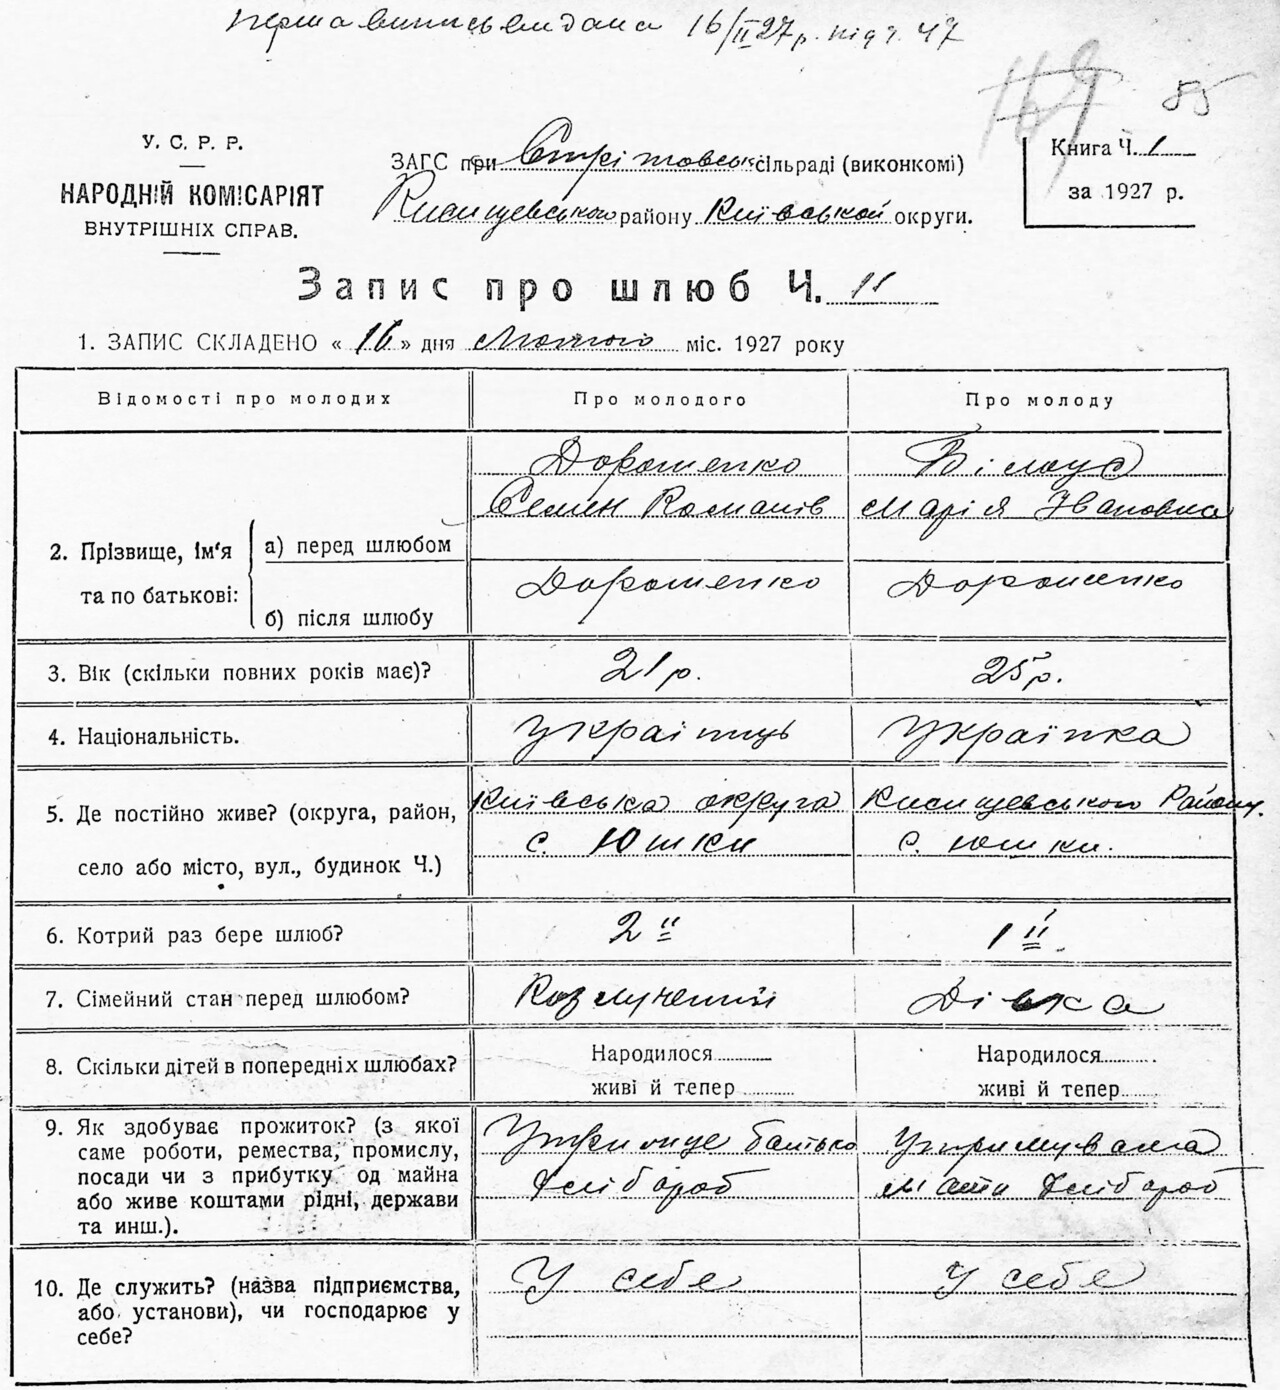 перша випись видана 16/II 27 р. під ч. 47
169 85
У. С. Р. Р.
НАРОДНІЙ КОМІСАРІЯТ
ВНУТРІШНІХ СПРАВ.
ЗАГС при Стрітовськ сільраді (виконкомі)
Кисищевського району Київської округи.
Книга Ч. 1
за 1927 р.
Запис про шлюб Ч. 11
1. ЗАПИС СКЛАДЕНО « 16 » дня Лютого міс. 1927 року
Відомості про молодих Про молодого Про молоду
2. Прізвище, ім'я та по батькові:
а) перед шлюбом
Дорошенко
Семен Романів
Білоус
Марія Івановна
б) після шлюбу
Дорошенко Дорошенко
3. Вік (скільки повних років має)? 21 р. 25 р.
4. Національність. Українць Українка
5. Де постійно живе? (округа, район,
село або місто, вул., будинок Ч.)
Київська округа
с. Юшки
Кисищевського Району.
с. Юшки.
6. Котрий раз бере шлюб? 2 й 1 й
7. Сімейний стан перед шлюбом? Розлучений Дівка
8. Скільки дітей в попередніх шлюбах?
Народилося
живі й тепер
Народилося
живі й тепер
9. Як здобуває прожиток? (з якої
саме роботи, ремества, промислу,
посади чи з прибутку од майна
або живе коштами рідні, держави
та инш.).
Утримує батько
хлібороб
Утримувала
мати хлібороб
10. Де служить? (назва підприємства,
або установи), чи господарює у
себе?
У себе У себе